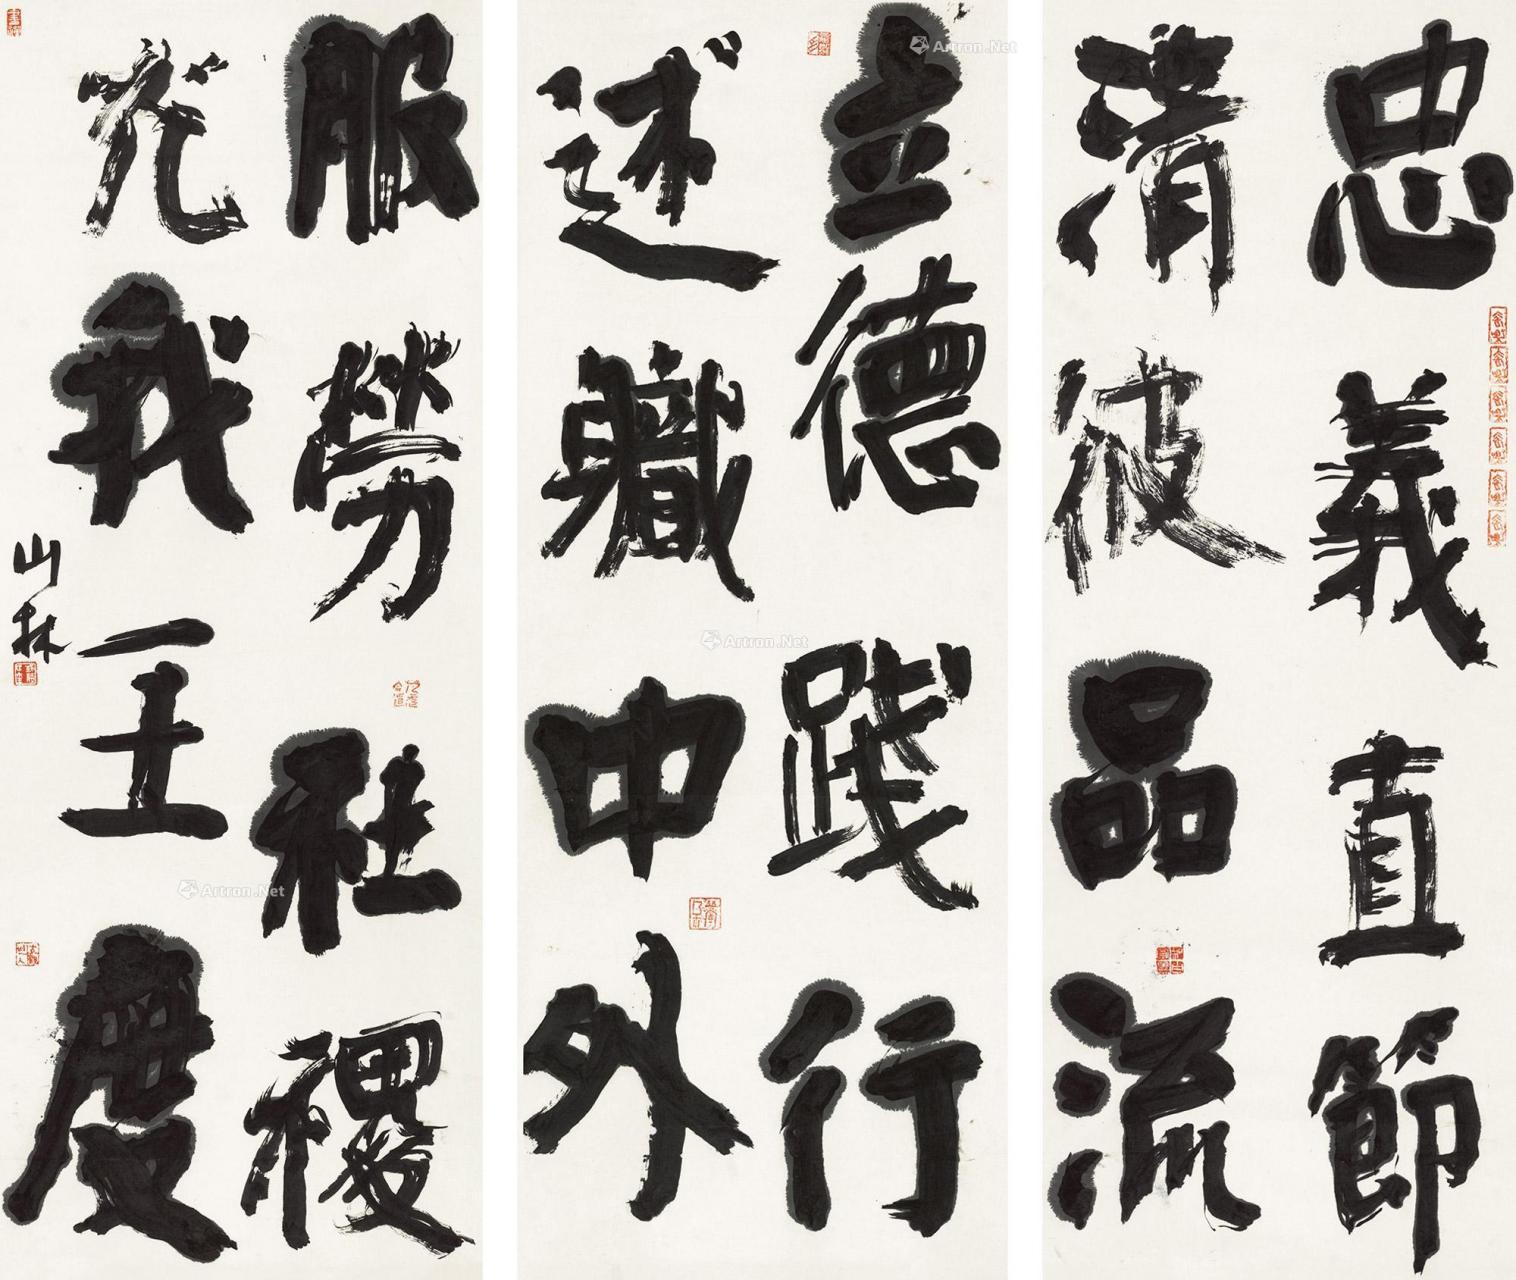 忠義直節
清彼品流
立德踐行
述職中外
服勞社稷
光我王度
山林
Artron.Net
Artron.Net
Artron.Net